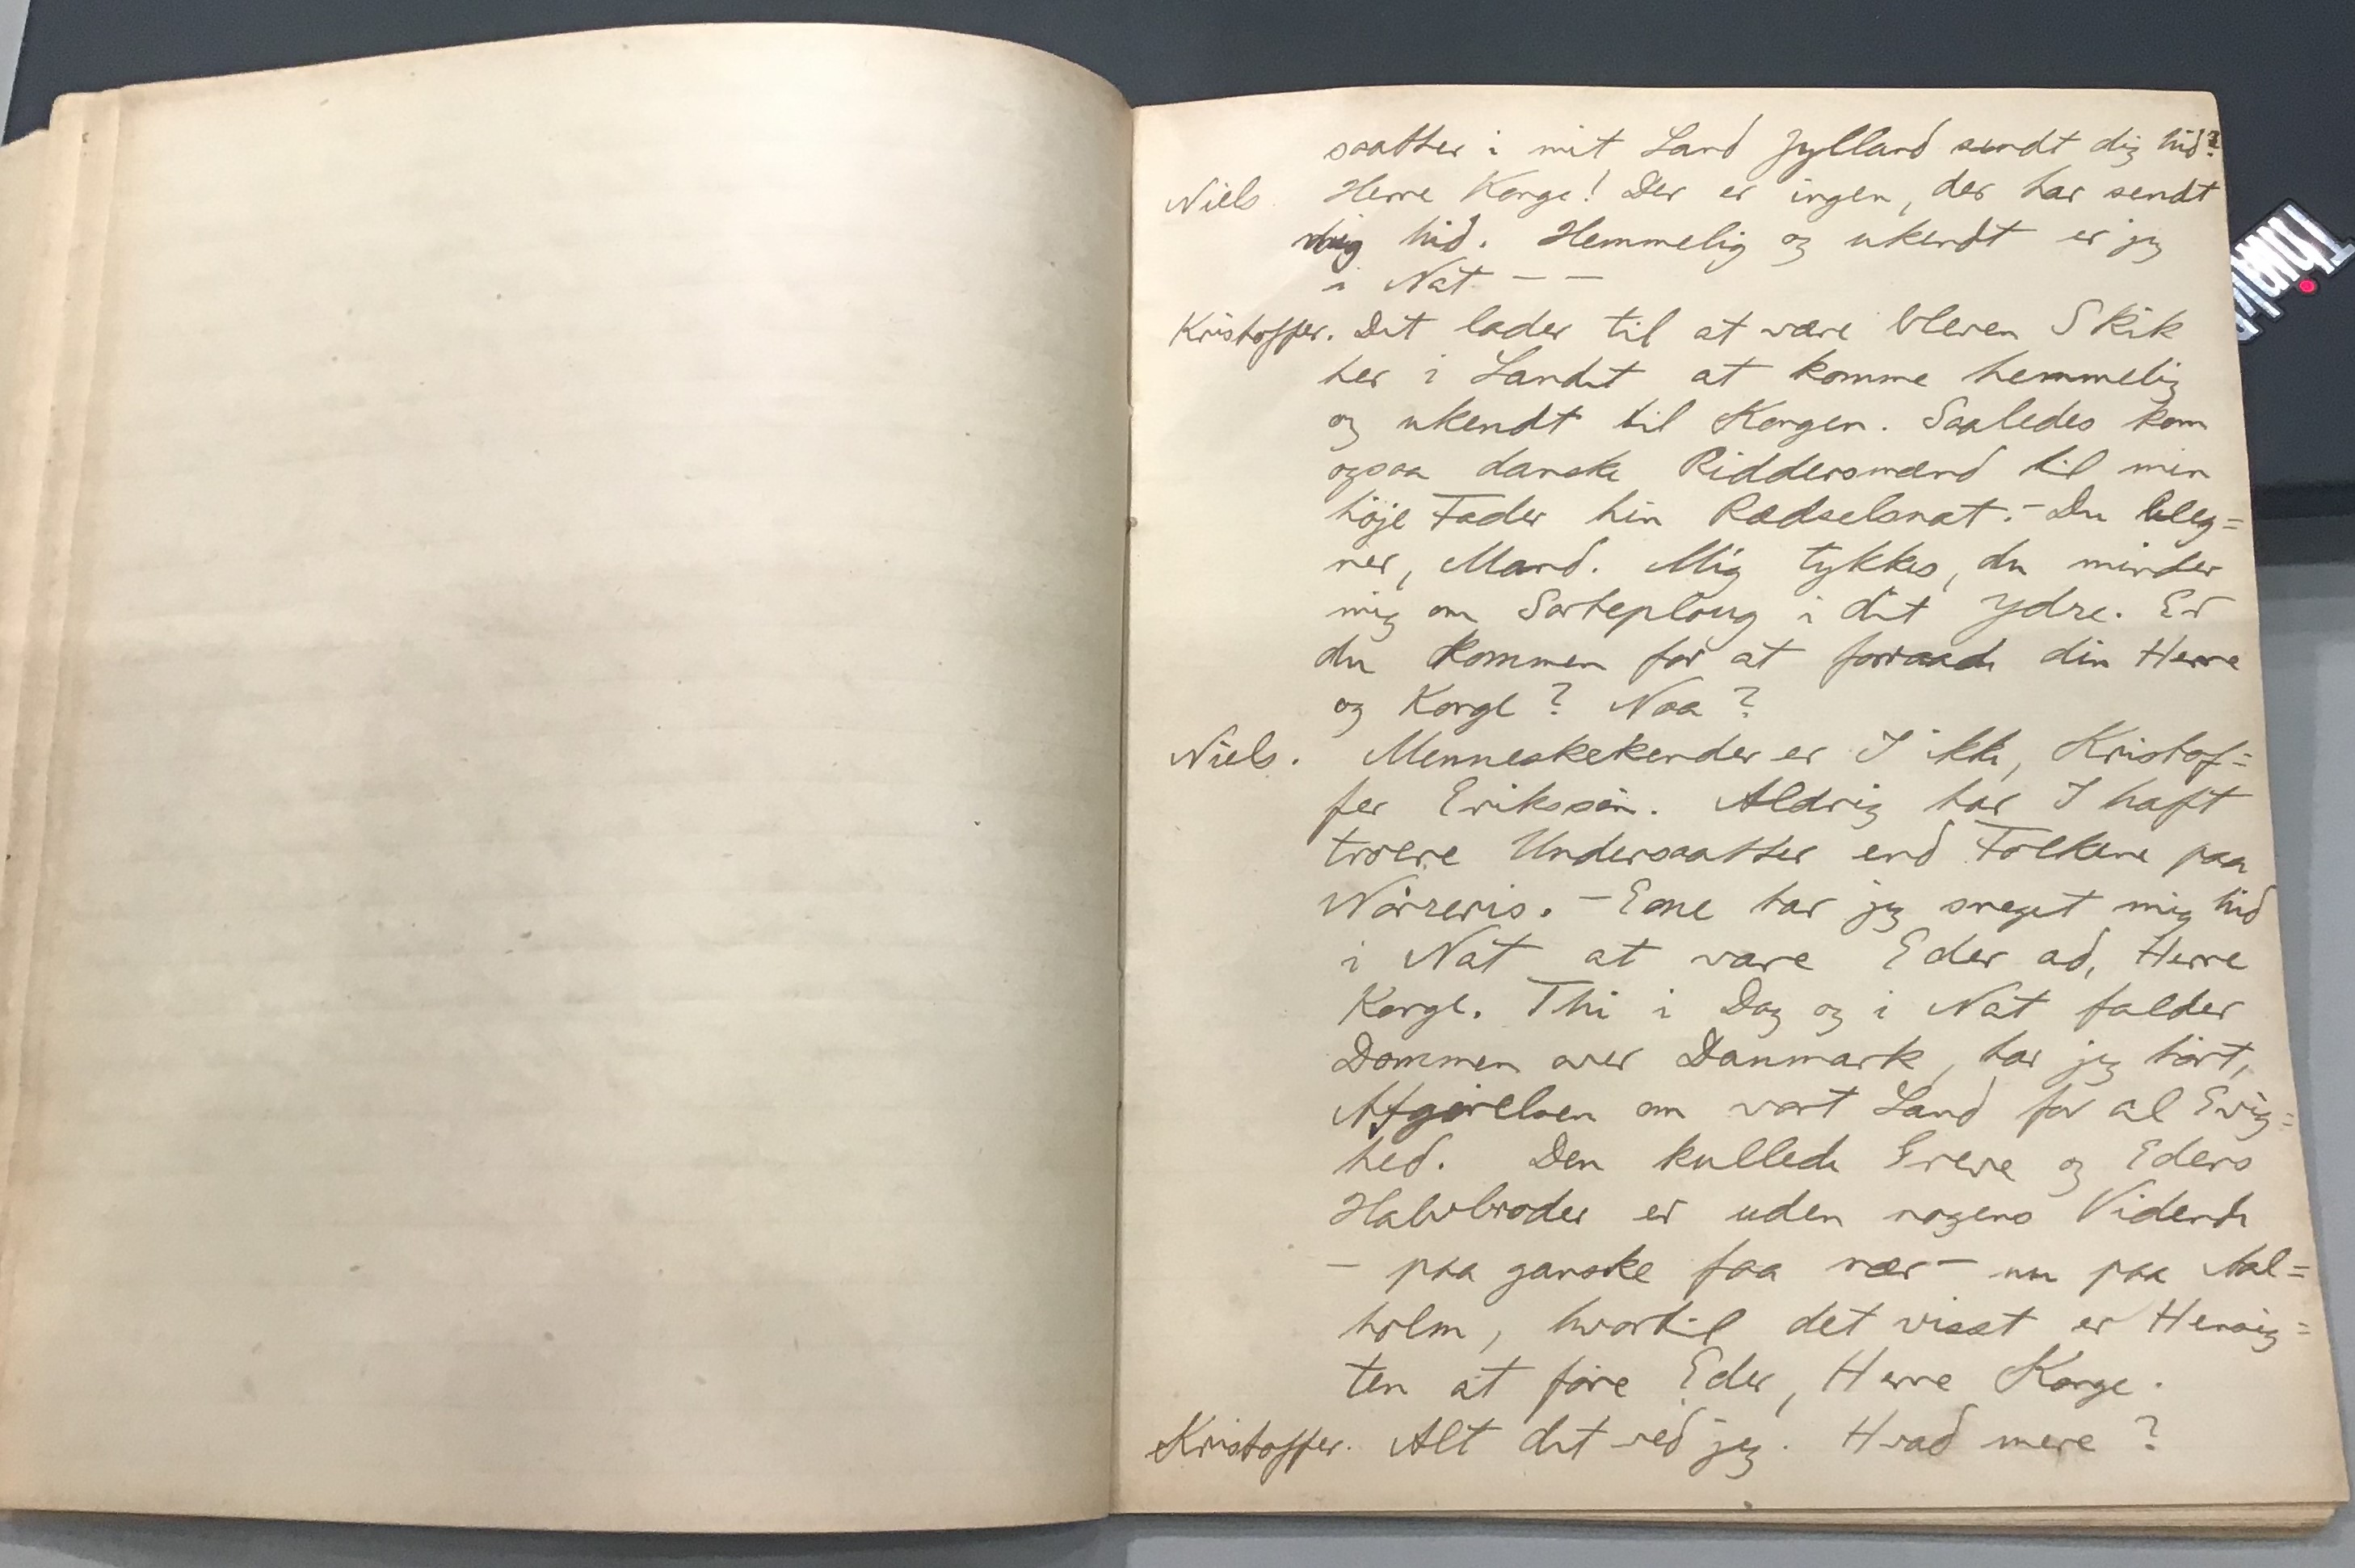 saatter i mit Land Jylland sendt dig hid?
Niels. Herre Konge! Der er ingen, der har sendt
mig hid. Hemmelig og ukendt er jeg
i Nat - -
Kristoffer. Det lader til at være bleven Skik
her i Landet at komme hemmelig
og ukendt til Kongen. Saaledes kom
ogsaa danske Riddersmænd til min
høje Fader hin Rædselsnat. - Du bleg=
ner, Mand. Mig tykkes, du minder
mig om Sorteploug i dit Ydre. Er
du kommen for at forraade din Herre
og Konge? Naa?
Niels. Menneskekender er I ikke, Kristof=
fer Erikssøn. Aldrig har I haft
troere Undersaatter end Folkene paa
Nørreris. - Ene har jeg sneget mig hid
i Nat at vare Eder ad, Herre
Konge. Thi i Dag og i Nat falder
Dommen over Danmark, har jeg hørt,
Afgørelsen om vort Land for al Evig=
hed. Den kullede Greve og Eders
Halvbroder er uden nogens Vidende
- paa ganske faa nær - nu paa Aal=
holm, hvortil det visst er Hensig=
ten at føre Eder, Herre Konge.
Kristoffer. Alt det ved jeg. Hvad mere?